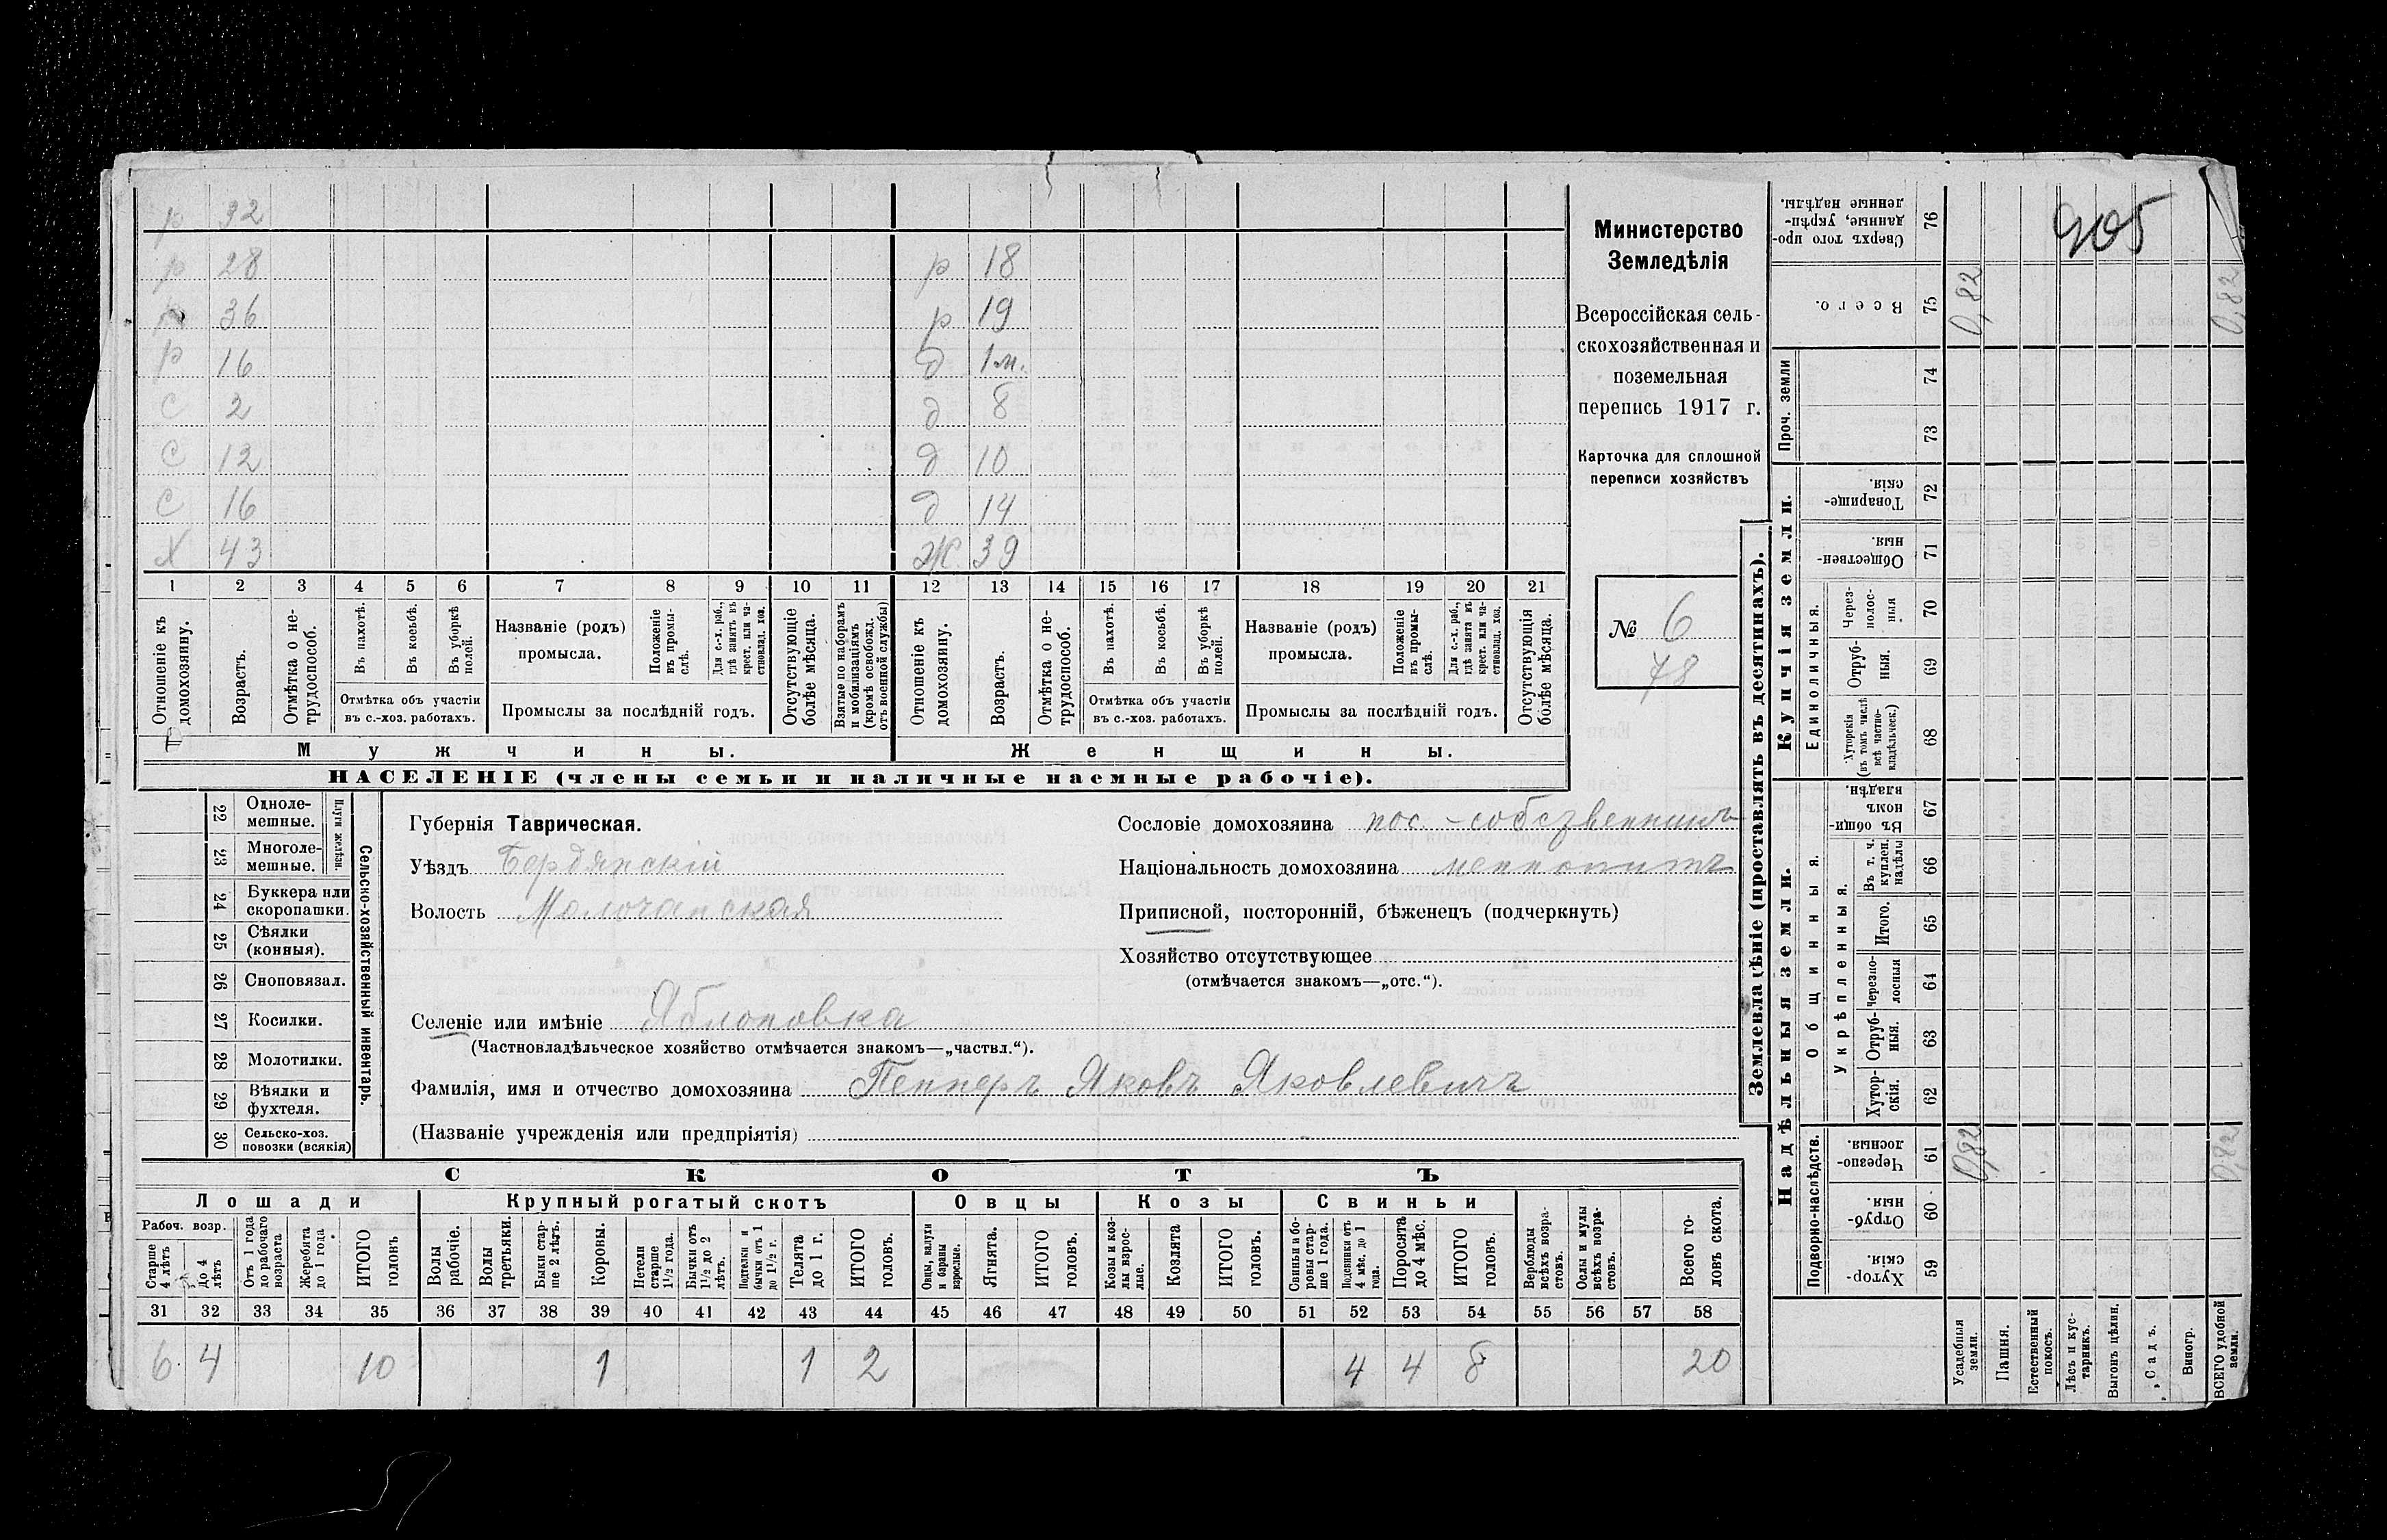 р 32
р 28 р 18
р 36 р 19
р 16 д 1 м.
С 2 д 8
С 12 д 10
С 16 д 14
Х 43 Ж. 39
1 2 3 4 5 6 7 8 9 10 11 12 13 14 15 16 17 18 19 20 21
Отношеніе къ домохозяину.
Возрастъ.
Отмѣтка о не-трудоспособ.
Въ пахотѣ.
Въ косьбѣ.
Въ уборкѣ полей.
Отмѣтка объ участіи
въ с.-хоз. работахъ.
Названіе (родъ)
промысла.
Положеніе въ промы-слѣ.
Для с.-х. раб., гдѣ занятъ въ крест. или ча-стновлад. хоз.
Промыслы за послѣдній годъ.
Отсутствующіе болѣе мѣсяца.
Взятые по наборамъ и мобилизаціямъ (кромѣ освобожд. отъ военной службы)
Отношеніе къ домохозяину.
Возрастъ.
Отмѣтка о не-трудоспособ.
Въ пахотѣ.
Въ косьбѣ.
Въ уборкѣ полей.
Отмѣтка объ участіи
въ с.-хоз. работахъ.
Названіе (родъ)
промысла.
Положеніе въ промы-слѣ.
Для с.-х. раб., гдѣ занята въ крест. или ча-стновлад. хоз.
Промыслы за послѣдній годъ.
Отсутствующія болѣе мѣсяца.
Мужчины. Женщины.
НАСЕЛЕНІЕ (члены семьи и наличные наемные рабочіе).
Министерство
Земледѣлія
Всероссійская сель-
скохозяйственная и
поземельная
перепись 1917 г.
Карточка для сплошной
переписи хозяйствъ
№ 6
78
22 Одноле-мешные.
23 Многоле-мешные.
Плуги желѣзн.
24 Буккера или скоропашки.
25 Сѣялки (конныя).
26 Сноповязал.
27 Косилки.
28 Молотилки.
29 Вѣялки и фухтеля.
30 Сельско-хоз. повозки (всякія)
Сельско-хозяйственный инвентарь.
Губернія Таврическая.
Уѣздъ Бердянскій
Волость Молочанская
Селеніе или имѣніе Яблоновка
(Частновладѣльческое хозяйство отмѣчается знакомъ—„частвл.“).
Фамилія, имя и отчество домохозяина Пеннеръ Яковъ Яковлевичъ
(Названіе учрежденія или предпріятія)
Сословіе домохозяина пос.-собственникъ
Національность домохозяина меннонитъ
Приписной, посторонній, бѣженецъ (подчеркнуть)
Хозяйство отсутствующее
(отмѣчается знакомъ—„отс.“).
СКОТЪ
Лошади Крупный рогатый скотъ Овцы Козы Свиньи
Рабоч. возр.
Старше 4 лѣтъ
До 4 лѣтъ
Отъ 1 года до рабочаго возраста
Жеребята до 1 года
ИТОГО головъ
Волы рабочіе.
Волы третьяки.
Быки стар-ше 2 лѣтъ.
Коровы.
Нетели старше 1½ года.
Бычки отъ 1½ до 2 лѣтъ.
Подтелки и бычки отъ 1 до 1½ г.
Телята до 1 г.
ИТОГО головъ.
Овцы, валухи и бараны взрослые.
Ягнята.
ИТОГО головъ.
Козы и коз-лы взрос-лые.
Козлята
ИТОГО головъ.
Свиньи и бо-ровы стар-ше 1 года.
Подсвинки отъ 4 мѣс. до 1 года.
Поросята до 4 мѣс.
ИТОГО головъ.
Верблюды всѣхъ возра-стовъ.
Ослы и мулы всѣхъ возра-стовъ.
Всего го-ловъ скота.
31 32 33 34 35 36 37 38 39 40 41 42 43 44 45 46 47 48 49 50 51 52 53 54 55 56 57 58
6 4 10 1 1 2 4 4 8 20
Землевладѣніе (проставлять въ десятинахъ).
Купчія земли.
Надѣльныя земли.
Сверхъ того про-данные, укрѣп-ленные надѣлы. 76
Всего. 75 0,82 0,82
Проч. земли 74 73
Товарище-скія. 72
Обществен-ныя. 71
Единоличныя.
Через-полос-ныя 70
Отруб-ныя. 69
Хуторскія (въ томъ числѣ всѣ частно-владѣльческ.) 68
Въ общи-номъ владѣн. 67
Общинныя.
Укрѣпленныя.
Въ т. ч. куплен. надѣлы 66
Итого. 65
Черезпо-лосныя 64
Отруб-ныя. 63
Хутор-скія. 62
Подворно-наслѣдств.
Черезпо-лосныя. 61 0,82 0,82
Отруб-ныя. 60
Хутор-скія. 59
Усадебныя земли.
Пашня.
Естественный покосъ.
Лѣсъ и кус-тарникъ.
Выгонъ цѣлин.
Садъ.
Виногр.
ВСЕГО удобной земли.
905